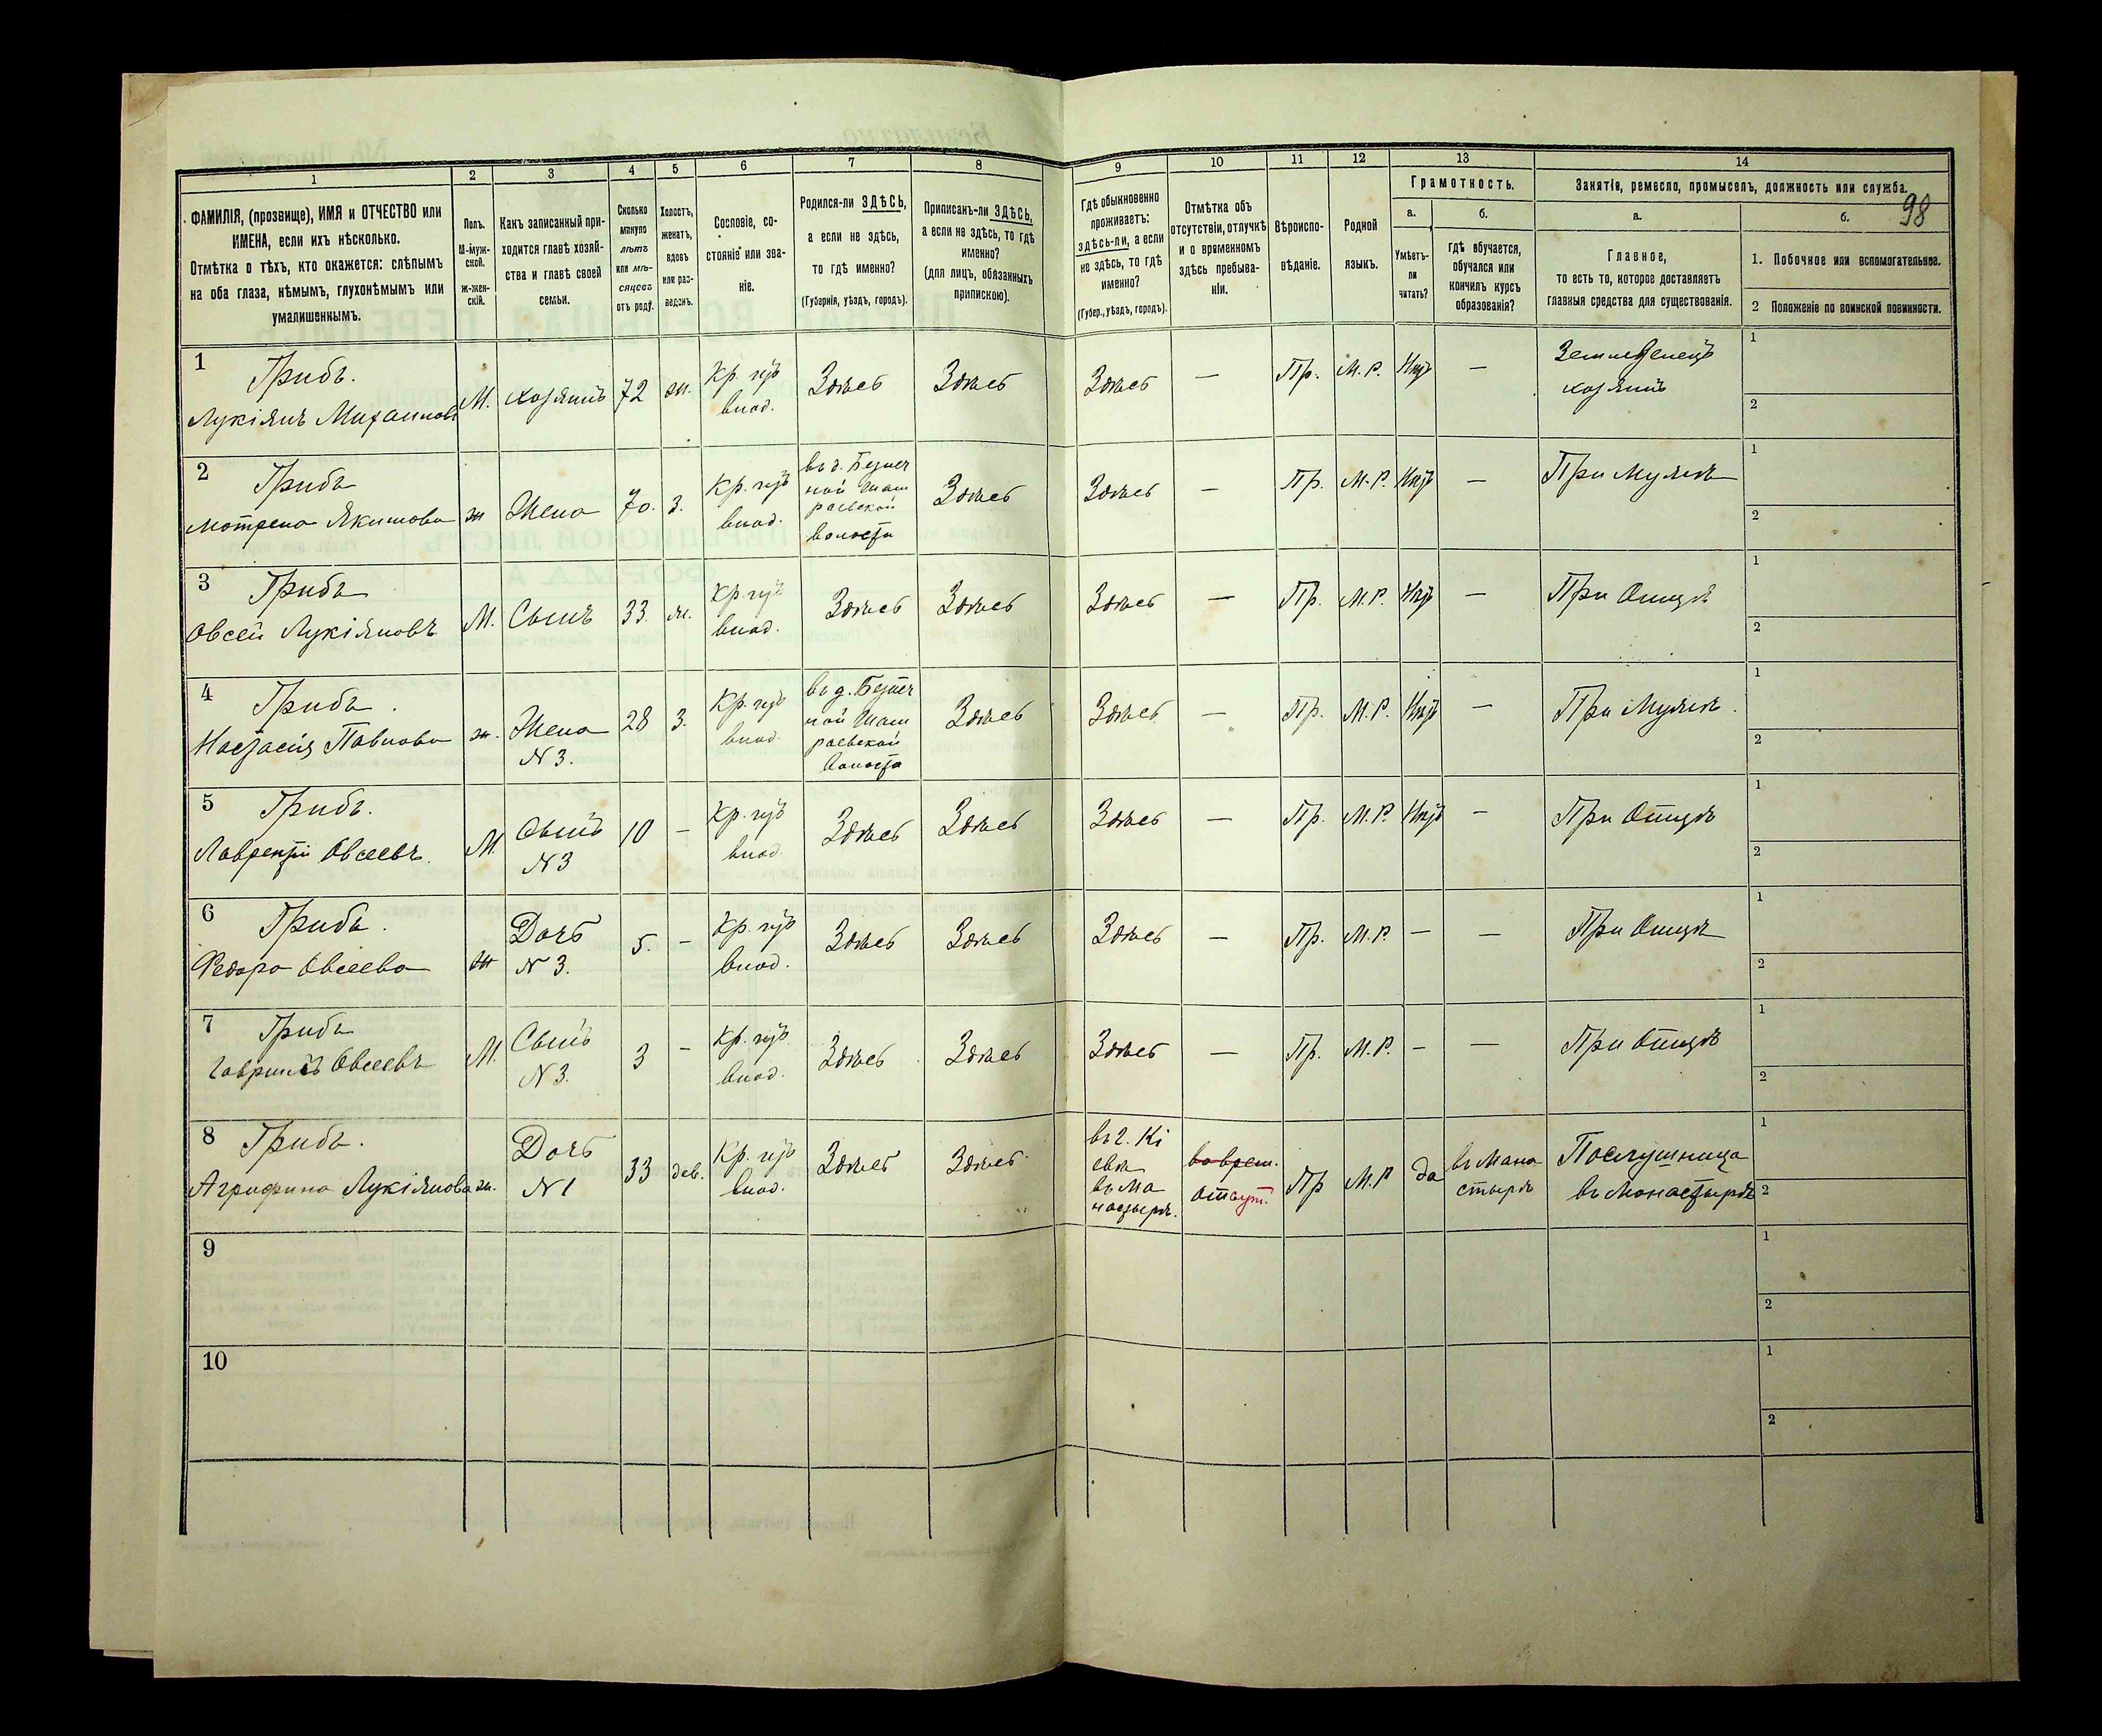 1 2 3 4 5 6 7 8
ФАМИЛІЯ, (прозвище), ИМЯ и ОТЧЕСТВО или
ИМЕНА, если ихъ нѣсколько.
Отмѣтка о тѣхъ, кто окажется: слѣпымъ
на оба глаза, нѣмымъ, глухонѣмымъ или
умалишеннымъ.
Полъ.
М-муж-
ской.
ж-жен-
скій.
Какъ записанный при-
ходится главѣ хозяй-
ства и главѣ своей
семьи.
Сколько
минуло
лѣтъ
или мѣ-
сяцевъ
отъ роду.
Холостъ,
женатъ,
вдовъ
или раз-
веденъ.
Сословіе, со-
стояніе или зва-
ніе.
Родился-ли ЗДѢСЬ,
а если не здѣсь,
то гдѣ именно?
(Губернія, уѣздъ, городъ).
Приписанъ-ли ЗДѢСЬ,
а если не здѣсь, то гдѣ
именно?
(для лицъ, обязанныхъ
припискою).
9 10 11 12 13 14
Гдѣ обыкновенно
проживаетъ:
здѣсь-ли, а если
не здѣсь, то гдѣ
именно?
(Губер., уѣздъ, городъ).
Отмѣтка объ
отсутствіи, отлучкѣ
и о временномъ
здѣсь пребыва-
ніи.
Вѣроиспо-
вѣданіе.
Родной
языкъ.
Грамотность.
а.
Умѣетъ-
ли
читать?
б.
гдѣ обучается,
обучался или
кончилъ курсъ
образованія?
Занятіе, ремесло, промыселъ, должность или служба.
98
а.
Главное,
то есть то, которое доставляетъ
главныя средства для существованія.
б.
1. Побочное или вспомогательное.
2 Положеніе по воинской повинности.
1 Грибъ.
Лукіянъ Михаиловъ М. хозяинъ 72 ж. Кр. изъ
влад. Здѣсь Здѣсь Здѣсь — Пр. М.Р. Нѣтъ — Земледѣлецъ
хозяинъ 1
2
2 Грибъ
Мотрена Якимова ж Жена 70. З. Кр. изъ
влад. въ д. Безпеч
ной Шам
раевской
волости Здѣсь Здѣсь — Пр. М.Р. Нѣтъ — При Мужѣ 1
2
3 Грибъ
Овсей Лукіяновъ М. Сынъ 33. ж. Кр. изъ
влад. Здѣсь Здѣсь Здѣсь — Пр. М.Р. Нѣтъ — При Отцѣ 1
2
4 Грибъ.
Настасія Павлова ж. Жена
N 3. 28 З. Кр. изъ
влад. въ д. Безпеч
ной Шам
раевской
волости Здѣсь Здѣсь — Пр. М.Р. Нѣтъ — При Мужѣ. 1
2
5 Грибъ.
Лаврентій Овсеевъ. М. Сынъ
N 3 10 — Кр. изъ
влад. Здѣсь Здѣсь Здѣсь — Пр. М.Р. Нѣтъ — При Отцѣ 1
2
6 Грибъ.
Федора Овсеева ж Дочь
N 3. 5. — Кр. изъ
влад. Здѣсь Здѣсь Здѣсь — Пр. М.Р. — — При Отцѣ 1
2
7 Грибъ
Гаврилъ Овсеевъ М. Сынъ
N 3. 3 — Кр. изъ
влад. Здѣсь Здѣсь Здѣсь — Пр. М.Р. — — При Отцѣ 1
2
8 Грибъ.
Агрифина Лукіянова ж. Дочь
N 1 33 дев. Кр. изъ
влад. Здѣсь Здѣсь въ г. Кі
евѣ
въ Мо
настырѣ. во врем.
отсут. Пр М.Р да въ Мона
стырѣ Послушница
въ Монастырѣ 1
2
9 1
2
10 1
2